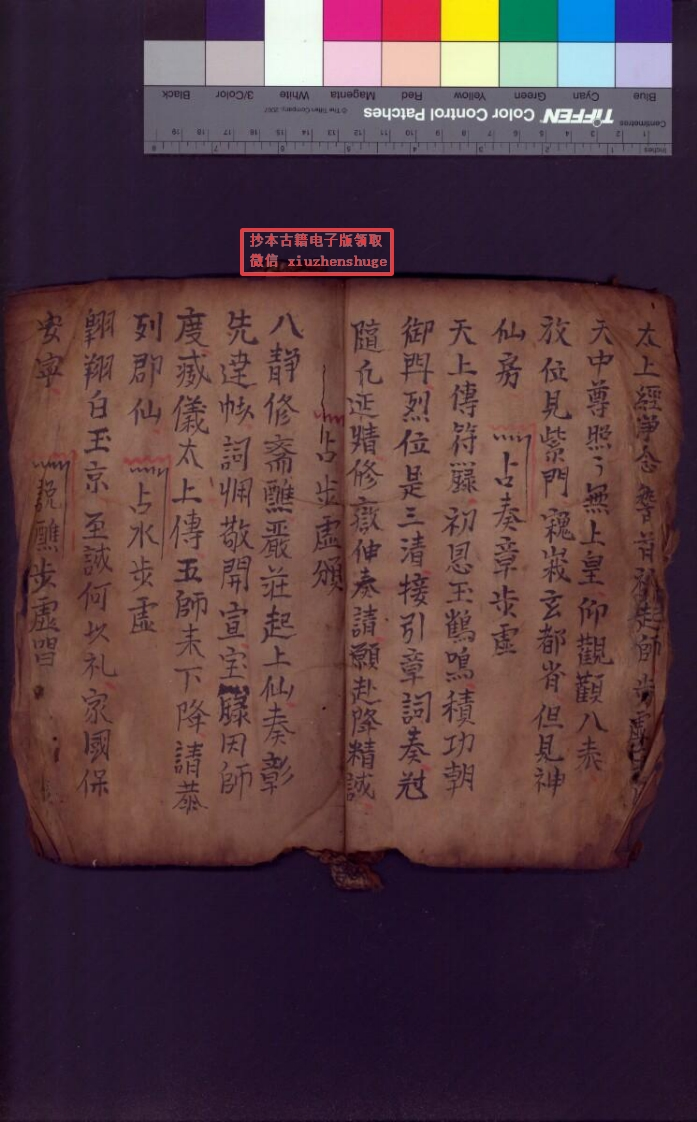 Blue Cyan Green Yellow Red Magenta White 3/Color Black
TIFFEN Color Control Patches © The Tiffen Company, 2007
Centimetres
Inches
抄本古籍电子版领取
微信 xiuzhenshuge
太上經 師步虛
天中尊照々無上皇仰觀觀八表
放位見紫門 玄都省但見神
仙房 占奏章步虛
天上傳符籙初恩玉鶴鳴積功朝
御門烈位是三清接引章詞奏
隨凡 精修 伸奏請願赴降精誠
占步虛頒
八静修斋醮嚴莊起上仙奏彰
先達 詞惘敬開宣宝籙因師
度 儀太上傳五師未下降請恭
列郡仙 占水步虛
翱翔白玉京至誠何以礼家國保
安寧 說醮步虛唱